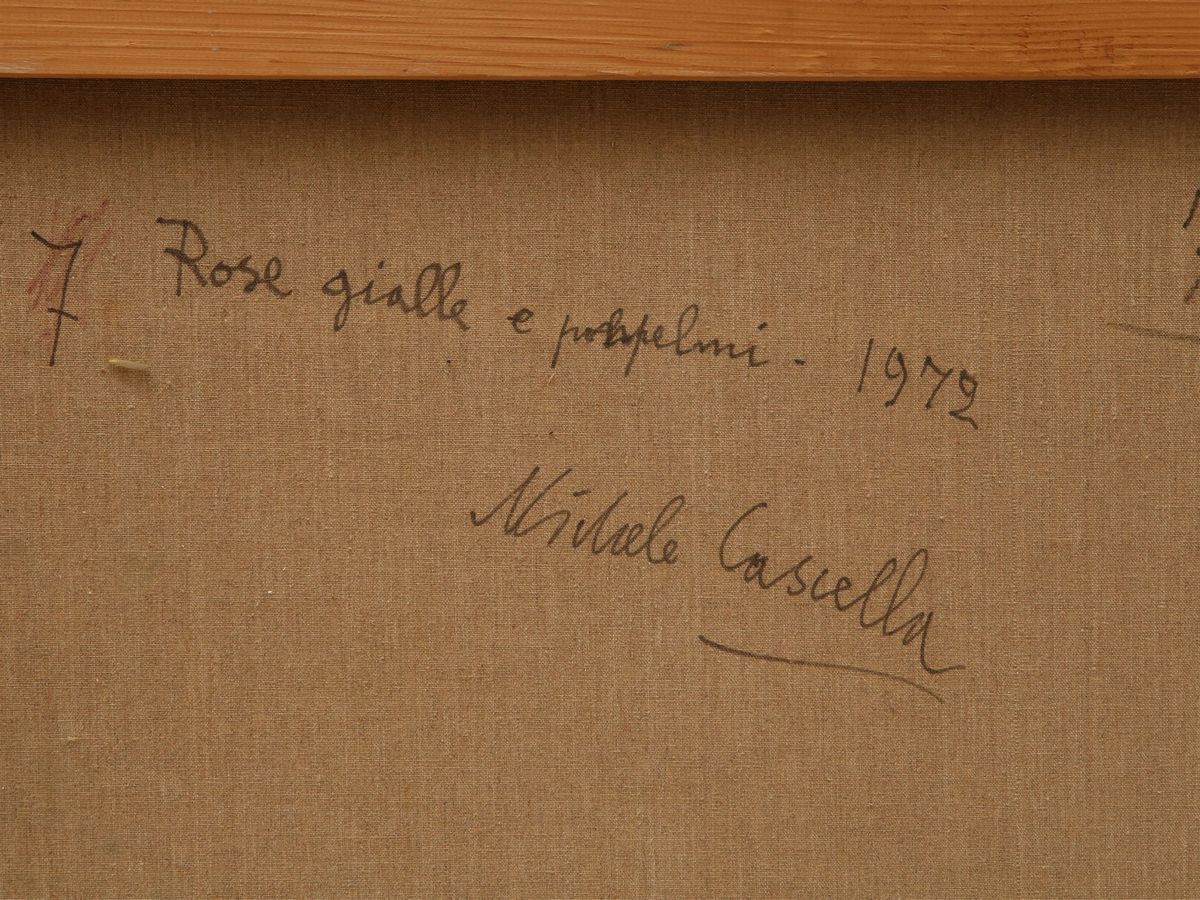 7 Rose gialle e pompelmi - 1972
Michele Cascella